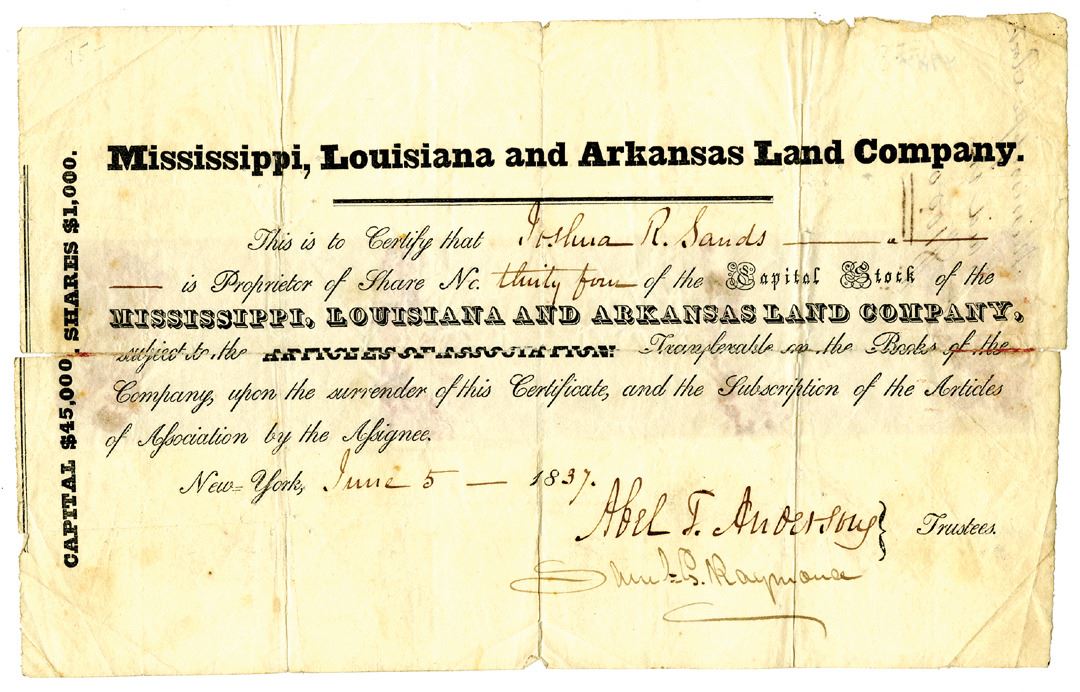 Mississippi, Louisiana and Arkansas Land Company.
CAPITAL $45,000, SHARES $1,000.
This is to Certify that Joshua R. Sands
is Proprietor of Share No. thirty four of the Capital Stock of the
MISSISSIPPI, LOUISIANA AND ARKANSAS LAND COMPANY,
subject to the ARTICLES OF ASSOCIATION: Transferable on the Books of the
Company, upon the surrender of this Certificate, and the Subscription of the Articles
of Association by the Assignee.
New-York, June 5 — 1837.
Abel T. Anderson } Trustees.
Saml G. Raymond